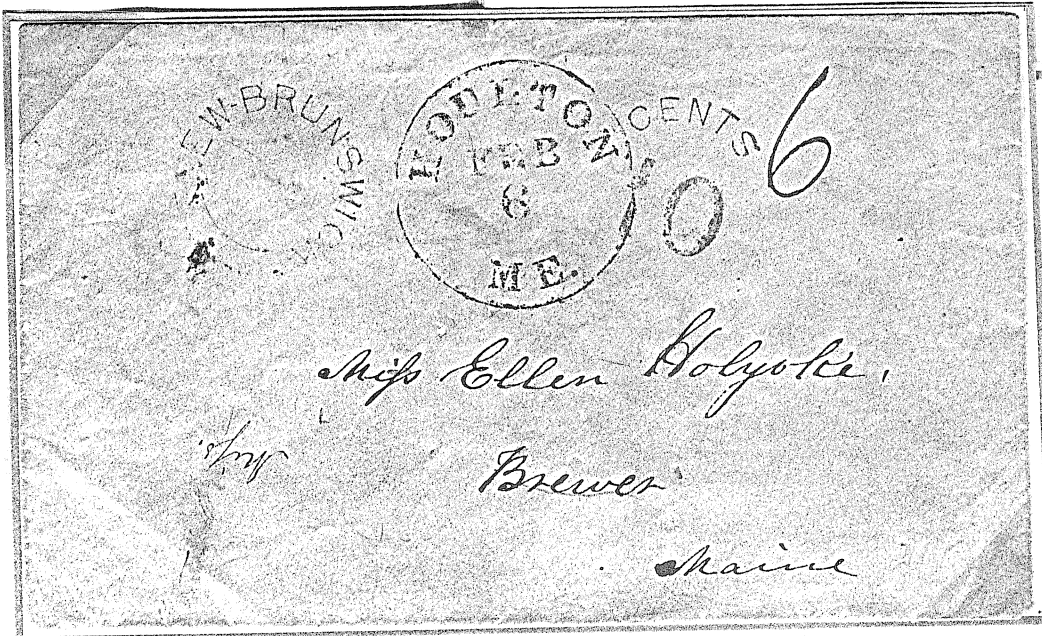 NEW-BRUNSWICK
HOULTON
FEB
6
ME.
CENTS
6
0
Miss Ellen Holyoke,
Miss
Brewer
Maine